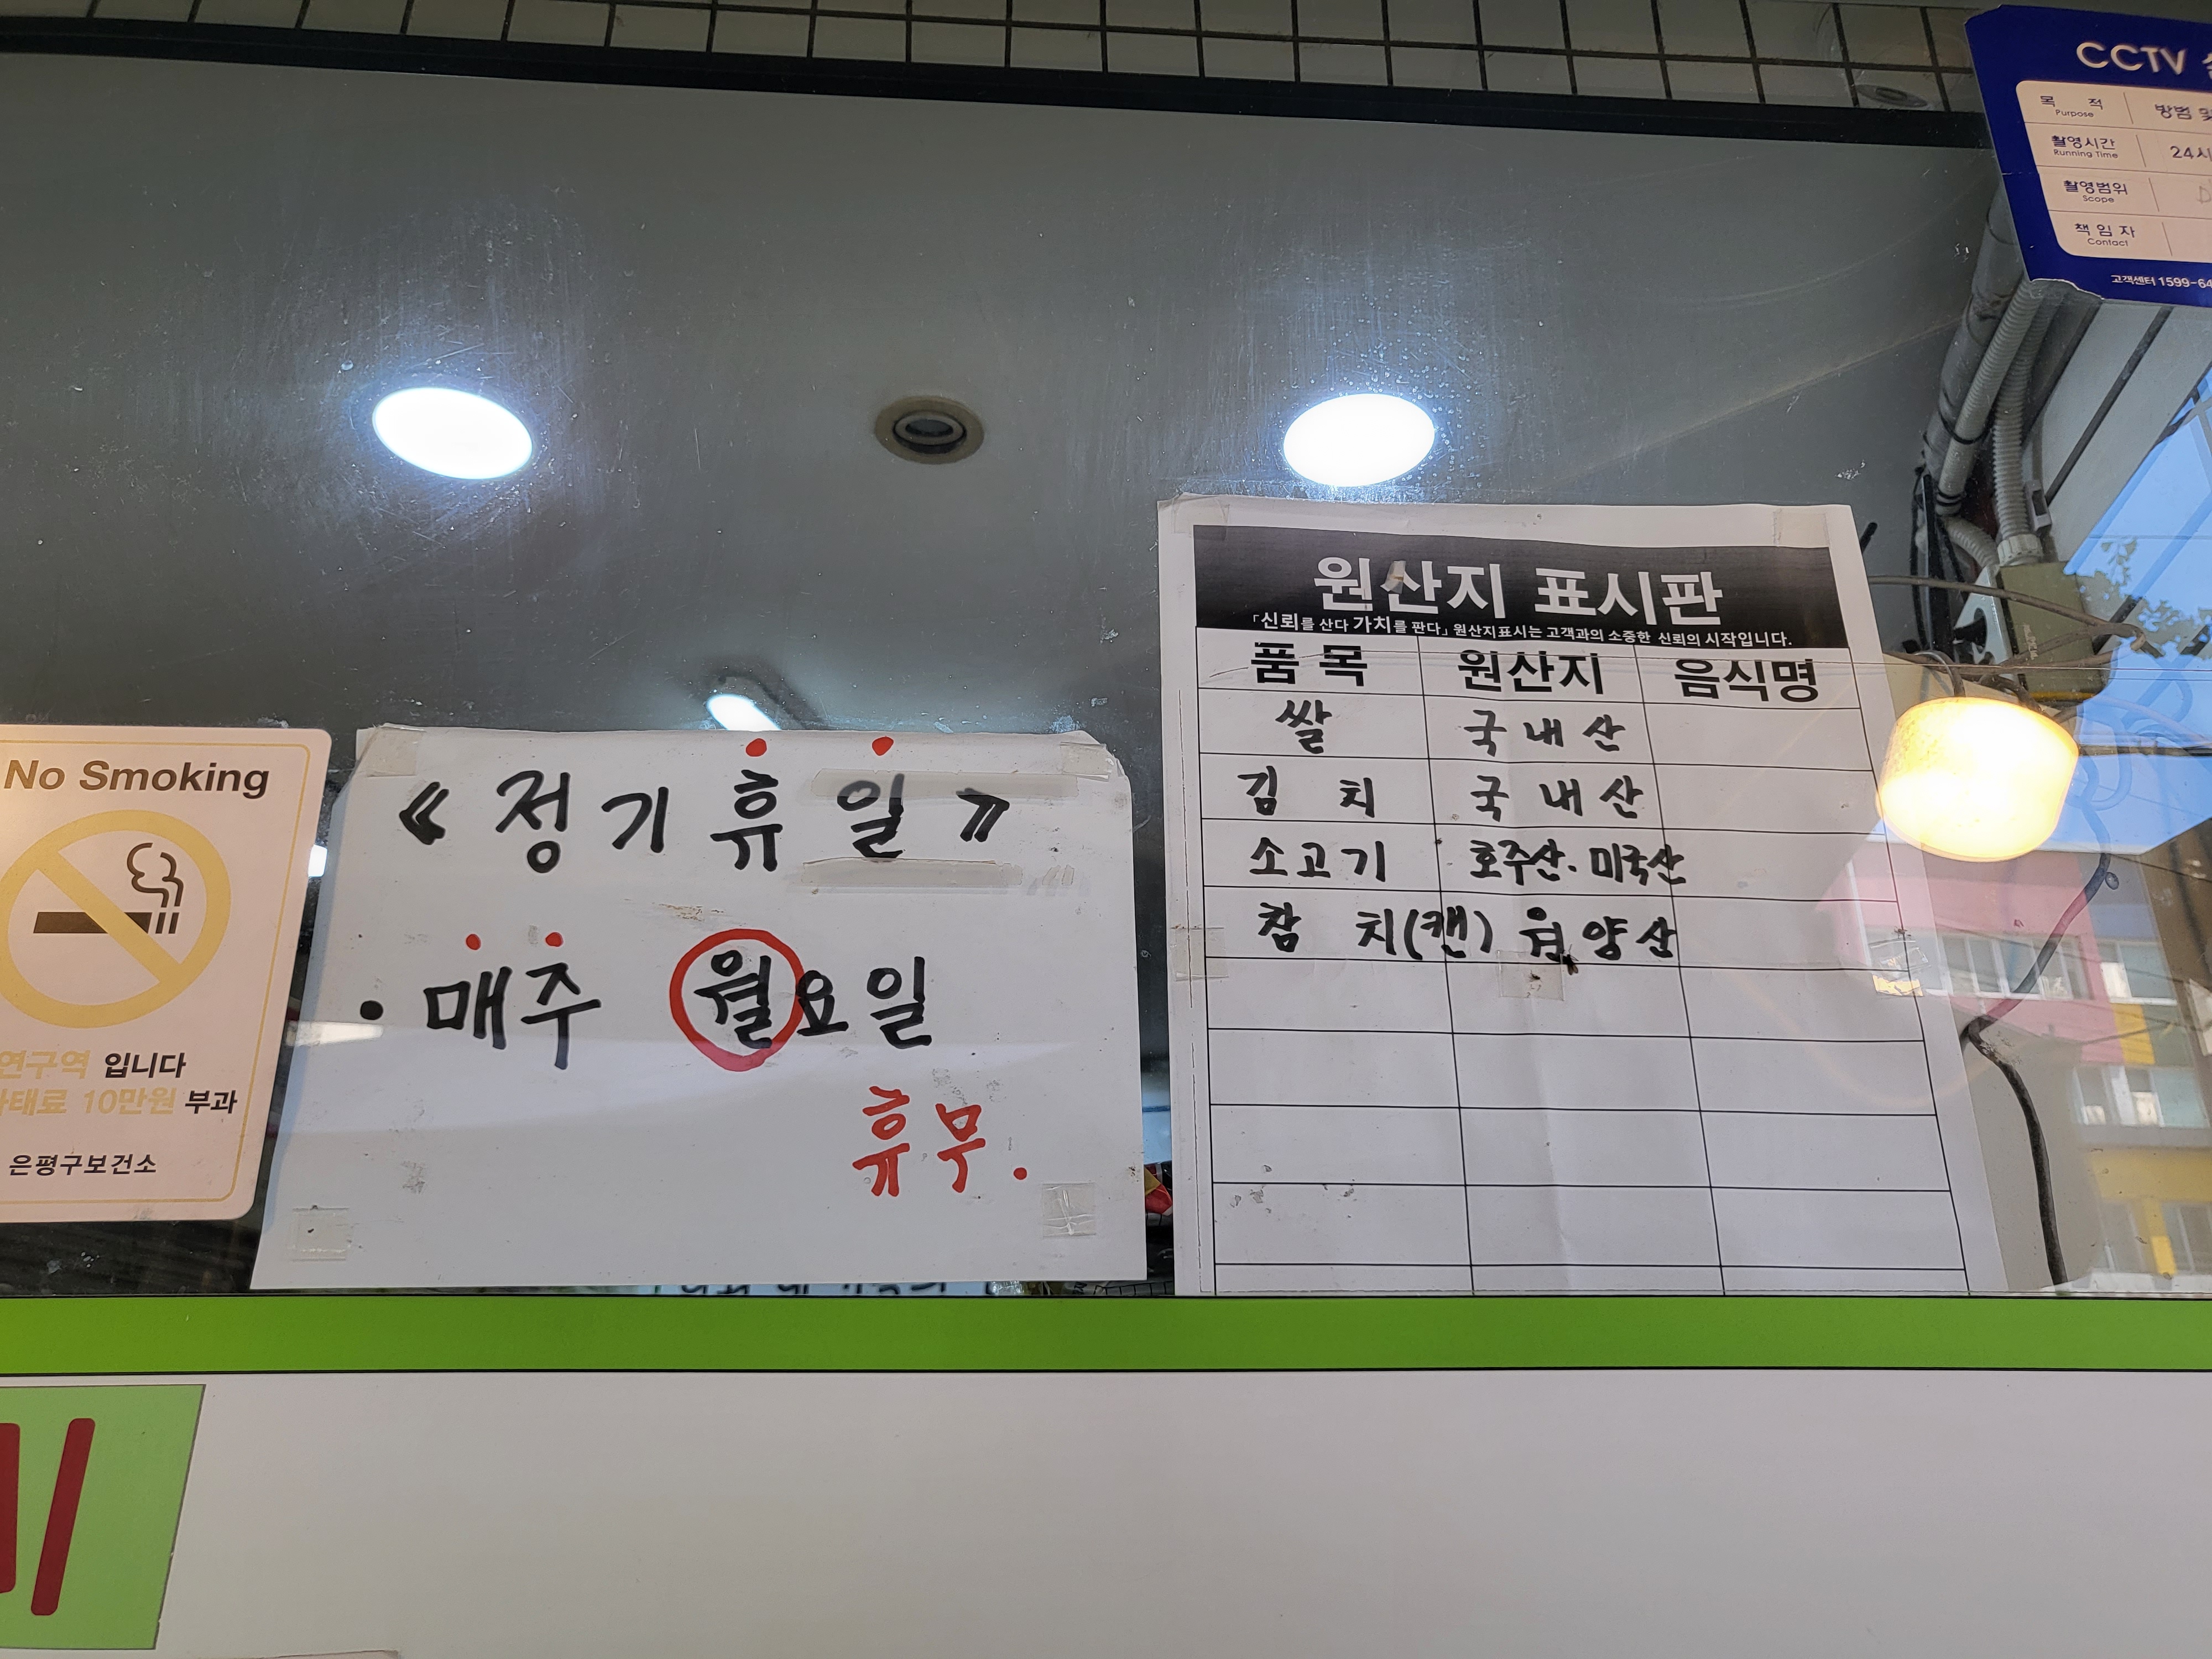 No Smoking
연구역 입니다
태료 10만원 부과
은평구보건소
《정기휴일》
· 매주 월요일
휴무.
원산지 표시판
「신뢰를 산다 가치를 판다」 원산지표시는 고객과의 소중한 신뢰의 시작입니다.
품목 원산지 음식명
쌀 국내산
김치 국내산
소고기 호주산·미국산
참치(캔) 원양산
CCTV
목적 방범 및
Purpose
촬영시간 24시
Running Time
촬영범위
Scope
책임자
Contact
고객센터 1599-64